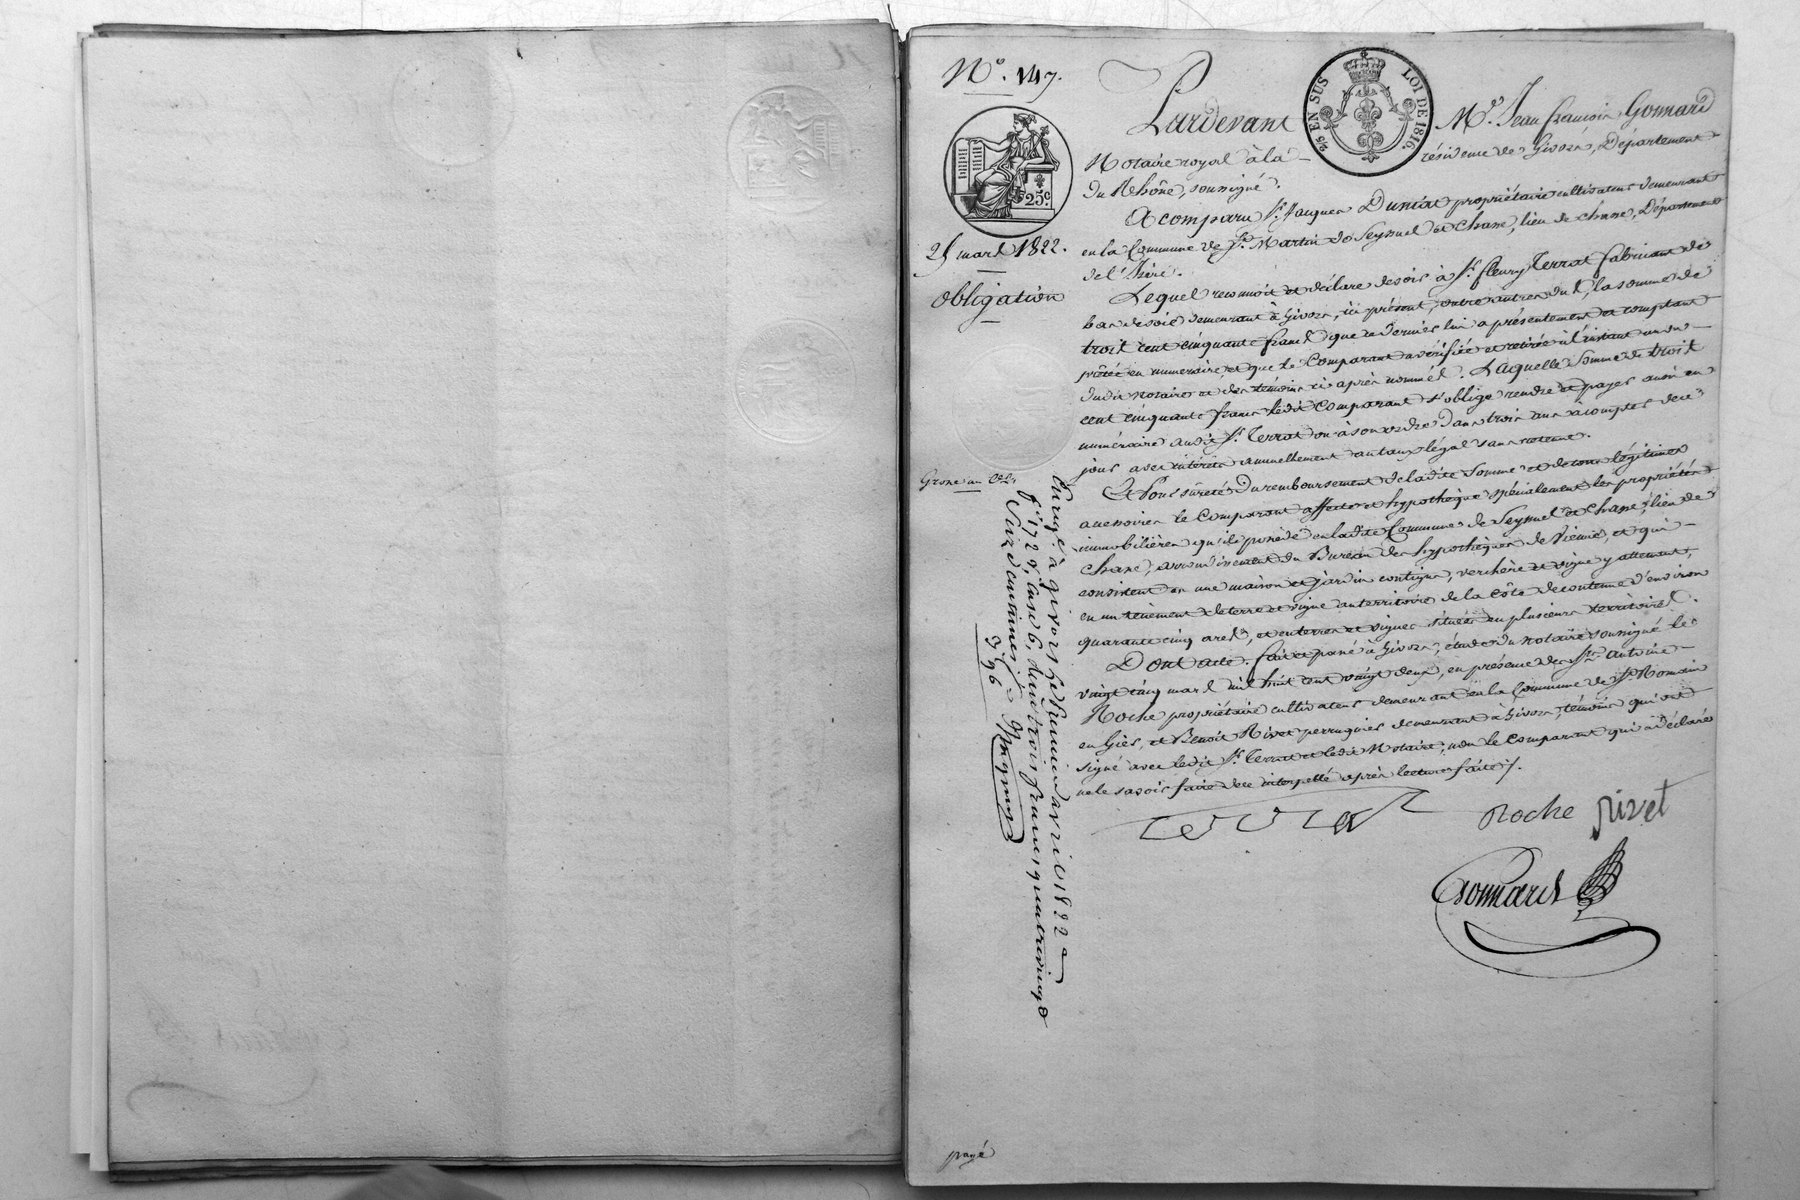 N°. 147.
25 mars 1822.
obligation
25c.
2/5 EN SUS
LOI DE 1816.
Pardevant Me. Jean françois Gonnard
Notaire royal à la résidence de Givors, Département
du Rhône, soussigné.
A comparu Sr. Jacques Duniat propriétaire cultivateur demeurant
en la Commune de St. Martin de Seyssuel et chane, lieu de chane, Département
de l'Isère.
Lequel reconnoit et déclare devoir à Sr. fleury Terrat fabricant de
bas de soie demeurant à Givors, ici présent, la somme de
trois cent cinquante francs que ce dernier lui a présentement et comptant
prêtée en numéraire, et que le Comparant a vérifiée et retirée à l'instant au vu
dudit notaire et des témoins ci après nommés. Laquelle Somme de trois
cent cinquante francs ledit Comparant s'oblige rendre et payer aussi en
numéraire audit Sr. Terrat ou à son ordre dans trois ans à compter de ce
jour avec intérêts annuellement au taux légal sans retenue.
Et Pour sureté du remboursement de ladite Somme et de tous légitimes
accessoires le Comparant affecte et hypothèque spécialement les propriétés
immobilières qu'il possède en ladite Commune de Seyssuel et chane, lieu de
chane, arrondissement du Bureau des hypothèques de Vienne, et qui
consistent en une maison et jardin contigus, verchère et vigne y attenant,
en un tènement de terre et vigne au territoire de la côte de contenue d'environ
quarante cinq ares, et en terres et vignes situées en plusieurs territoires.
Dont acte. fait et passé à Givors, étude du notaire soussigné le
vingt cinq mars mil huit cent vingt deux, en présence des Srs. Antoine
Roche propriétaire cultivateur demeurant en la Commune de St. Romain
en Giès, et Benoit Rivet perruquier demeurant à Givors, témoins qui ont
signé avec ledit Sr. Terrat et ledit Notaire, non le Comparant qui a déclaré
ne le savoir faire de ce interpellé après lecture faite /.
Terrat
Roche
Rivet
Gonnard
Enregé. à givors le premier avril 1822
fo. 172 Vo, Case 6, Reçu trois francs quatre vingt
Seize centimes
3f 96
payé